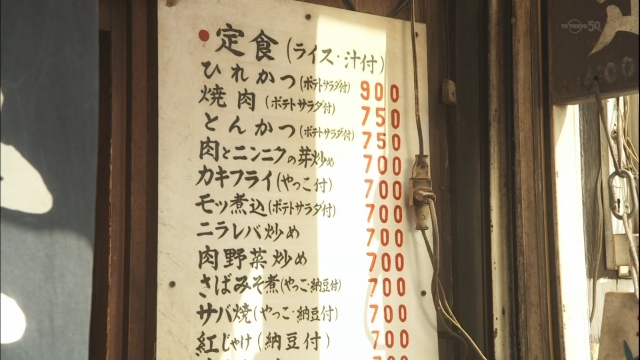 定食(ライス・汁付)
ひれかつ(ポテトサラダ付) 900
焼肉(ポテトサラダ付) 750
とんかつ(ポテトサラダ付) 750
肉とニンニクの芽炒め 700
カキフライ(やっこ付) 700
モツ煮込(ポテトサラダ付) 700
ニラレバ炒め 700
肉野菜炒め 700
さばみそ煮(やっこ・納豆付) 700
サバ焼(やっこ・納豆付) 700
紅じゃけ(納豆付) 700
TV TOKYO 50